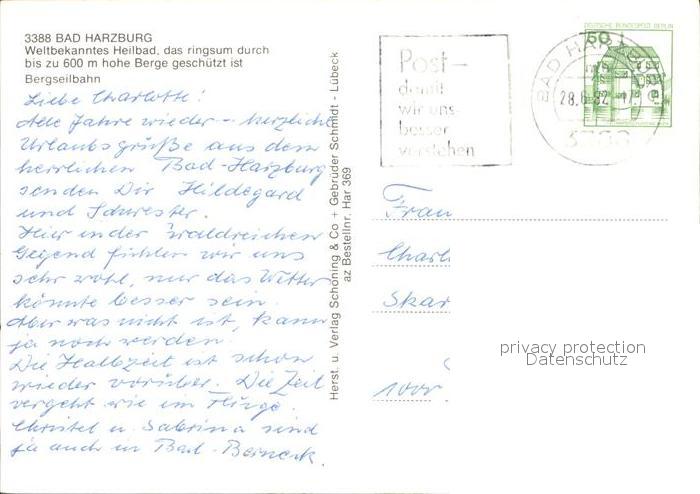 3388 BAD HARZBURG
Weltbekanntes Heilbad, das ringsum durch
bis zu 600 m hohe Berge geschützt ist
Bergseilbahn
Liebe Charlotte!
Alle Jahre wieder – herzliche
Urlaubsgrüße aus dem
herrlichen Bad-Harzburg
senden Dir Hildegard
und Schwester.
Hier in der waldreichen
Gegend fühlen wir uns
sehr wohl, nur das Wetter
könnte besser sein.
Aber was nicht ist, kann
ja noch werden.
Die Halbzeit ist schon
wieder vorüber. Die Zeit
vergeht wie im Fluge.
Christel u. Sabrina sind
ja auch in Bad-Berneck.
Herst. u. Verlag Schöning & Co + Gebrüder Schmidt - Lübeck
az Bestellnr. Har 369
Post –
damit
wir uns
besser
verstehen
DEUTSCHE BUNDESPOST BERLIN
50
BAD HARZBURG
28.6.82
3388
Frau
Charl
Skar
1000
privacy protection
Datenschutz